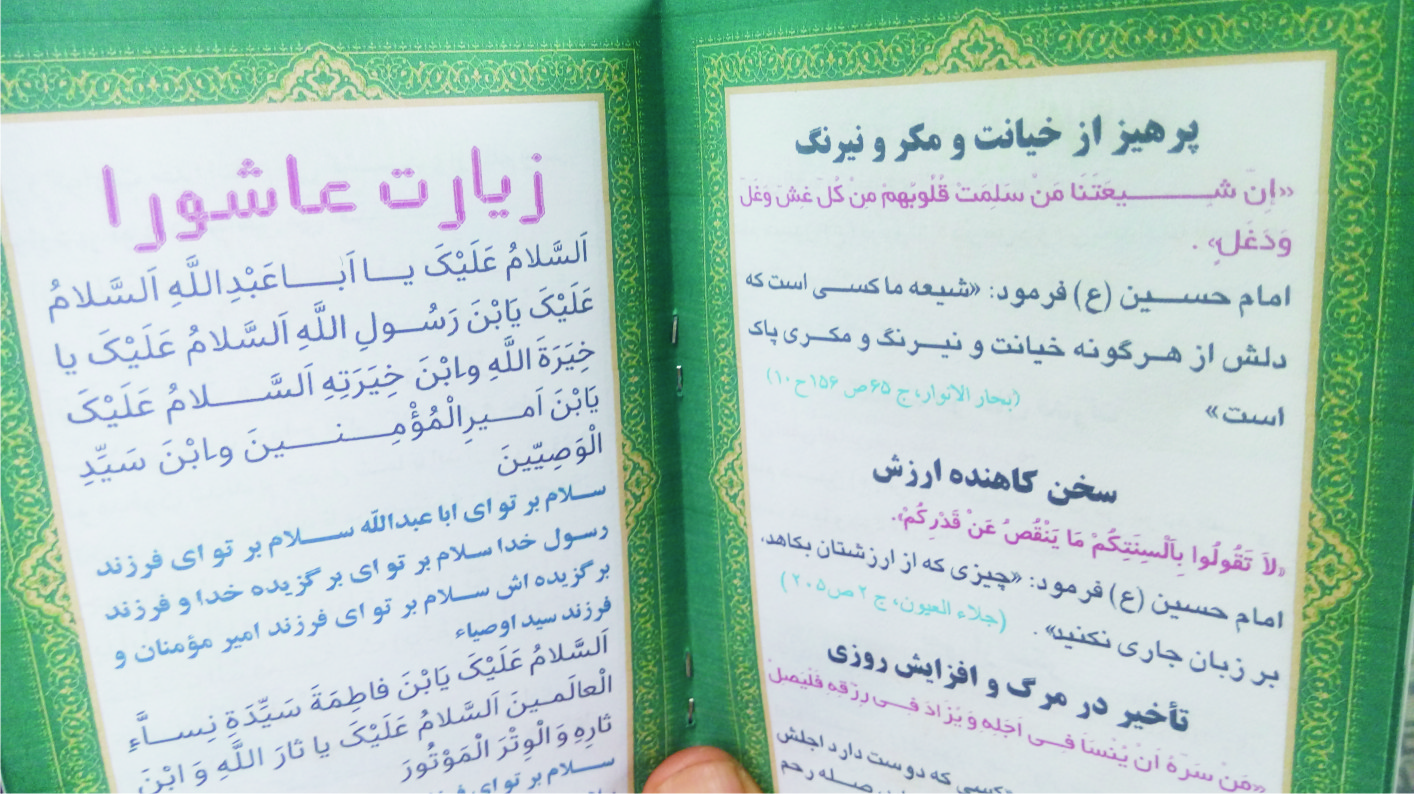 پرهیز از خیانت و مکر و نیرنگ
«اِنّ شِــیعَتُنَا مَنْ سَلِمَتْ قُلُوبُهُمْ مِنْ كُلّ غِشّ وَغَلّ
وَدَغَلٍ» .
امام حسین (ع) فرمود: «شیعه ما کسی است که
دلش از هرگونه خیانت و نیرنگ و مکری پاک
است» (بحار الانوار، ج ۶۵ ص ۱۵۶ ح ۱۰)
سخن کاهنده ارزش
«لاَ تَقُولُوا بِاَلْسِنَتِكُمْ مَا يَنْقُصُ عَنْ قَدْرِكُمْ».
امام حسین (ع) فرمود: «چیزی که از ارزشتان بکاهد،
بر زبان جاری نکنید» . (جلاء العیون، ج ۲ ص ۲۰۵)
تأخیر در مرگ و افزایش روزی
«مَنْ سَرّهُ اَنْ يُنْسَا فِى اَجَلِهِ وَ يُزَادَ فِى رِزْقِهِ فَلْيَصِلْ
کسی که دوست دارد اجلش
صله رحم
زیارت عاشورا
اَلسَّلامُ عَلَيْكَ يا اَبا عَبْدِ اللَّهِ اَلسَّلامُ
عَلَيْكَ يَابْنَ رَسُولِ اللَّهِ اَلسَّلامُ عَلَيْكَ يا
خِيَرَةَ اللَّهِ وابْنَ خِيَرَتِهِ اَلسَّلامُ عَلَيْكَ
يَابْنَ اَميرِالْمُؤْمِنينَ وابْنَ سَيِّدِ
الْوَصِيّينَ
سلام بر تو ای ابا عبدالله سلام بر تو ای فرزند
رسول خدا سلام بر تو ای برگزیده خدا و فرزند
برگزیده اش سلام بر تو ای فرزند امیر مؤمنان و
فرزند سید اوصیاء
اَلسَّلامُ عَلَيْكَ يَابْنَ فاطِمَةَ سَيِّدَةِ نِساَّءِ
الْعالَمينَ اَلسَّلامُ عَلَيْكَ يا ثارَ اللَّهِ وَ ابْنَ
ثارِهِ وَ الْوِتْرَ الْمَوْتُورَ
سلام بر تو ای